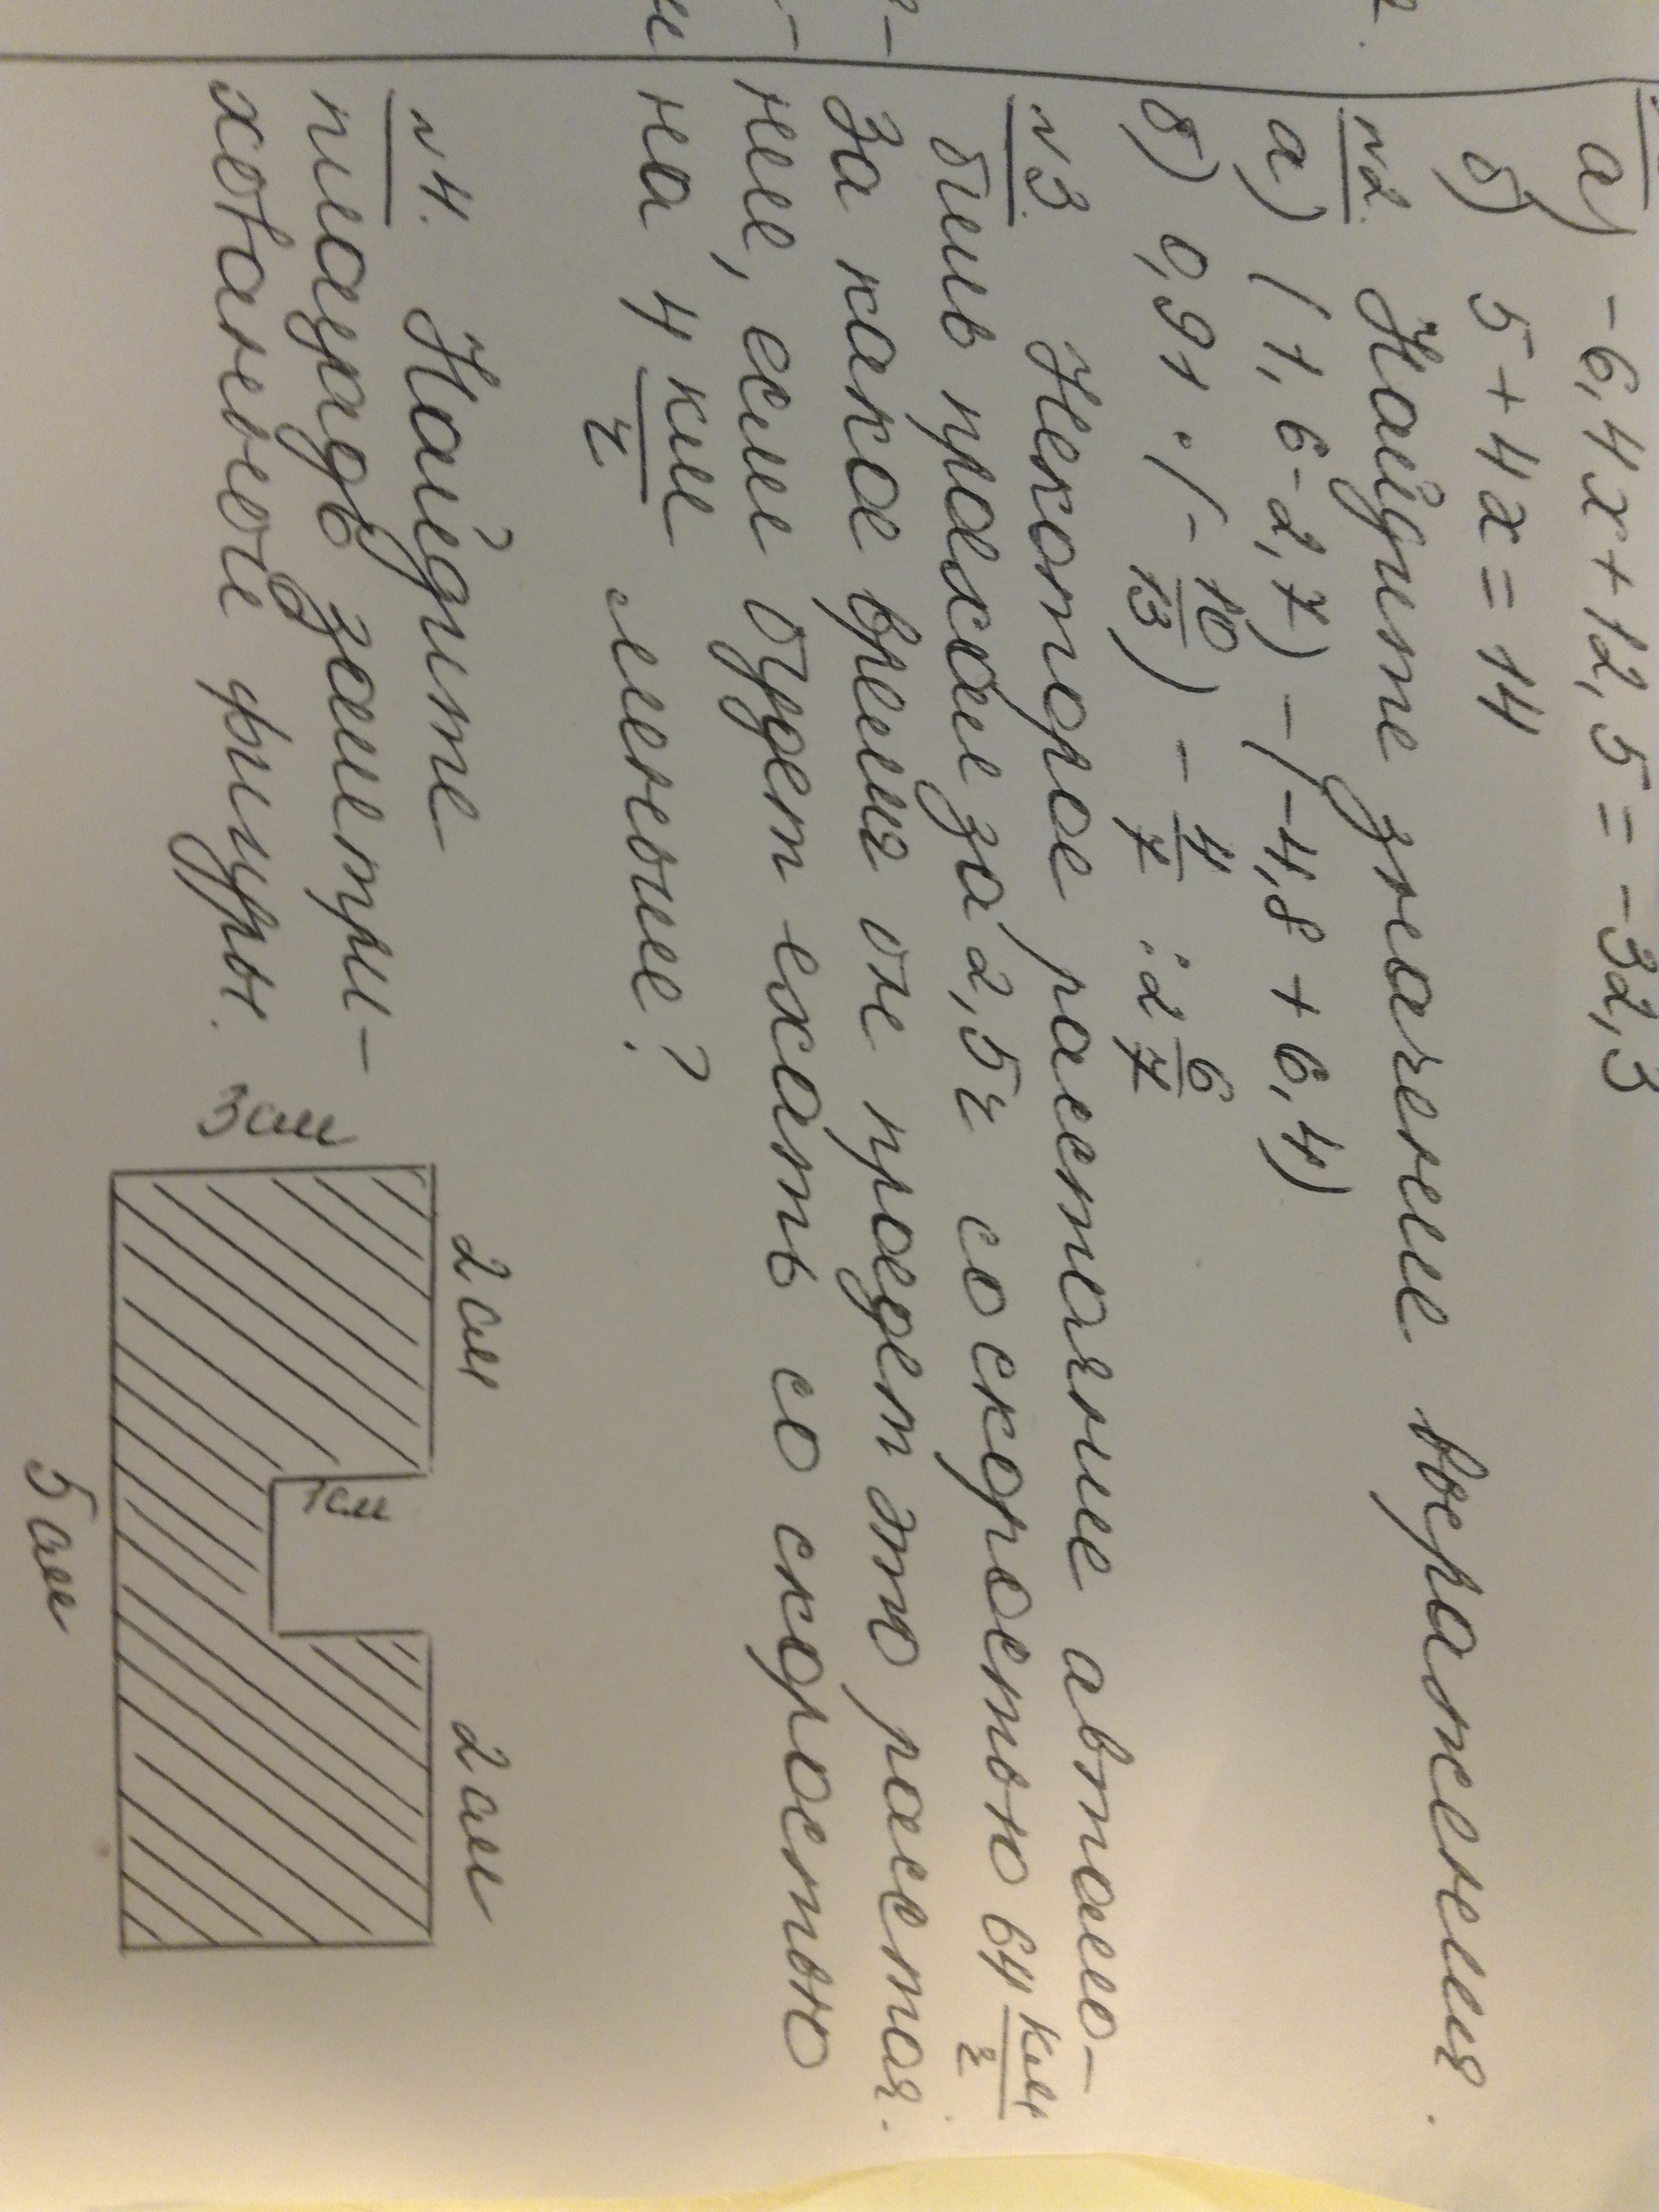 а) -6,4x+12,5 = -32,3
б) 5+4x=14
№2. Найдите значение выражения.
а) (1,6-2,7) - (-4,8 + 6,4)
б) 0,91 : (-10/13) - 4/7 : 2 6/7
№3. Некоторое расстояние автомо-
биль проехал за 2,5ч со скоростью 64 км/ч.
За какое время он проедет это расстоя-
ние, если будет ехать со скоростью
на 4 км/ч меньше?
№4. Найдите
площадь заштри-
хованной фигуры.
2см 2см
1см
3см
5см